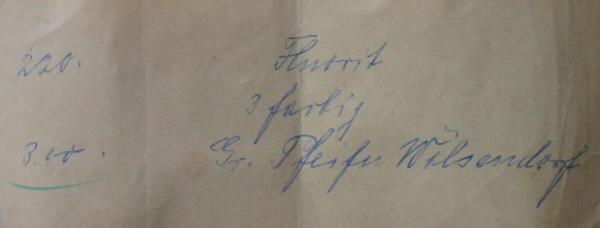 220. Fluorit
3 farbig
3.00. Gr. Pfeifer Wölsendorf